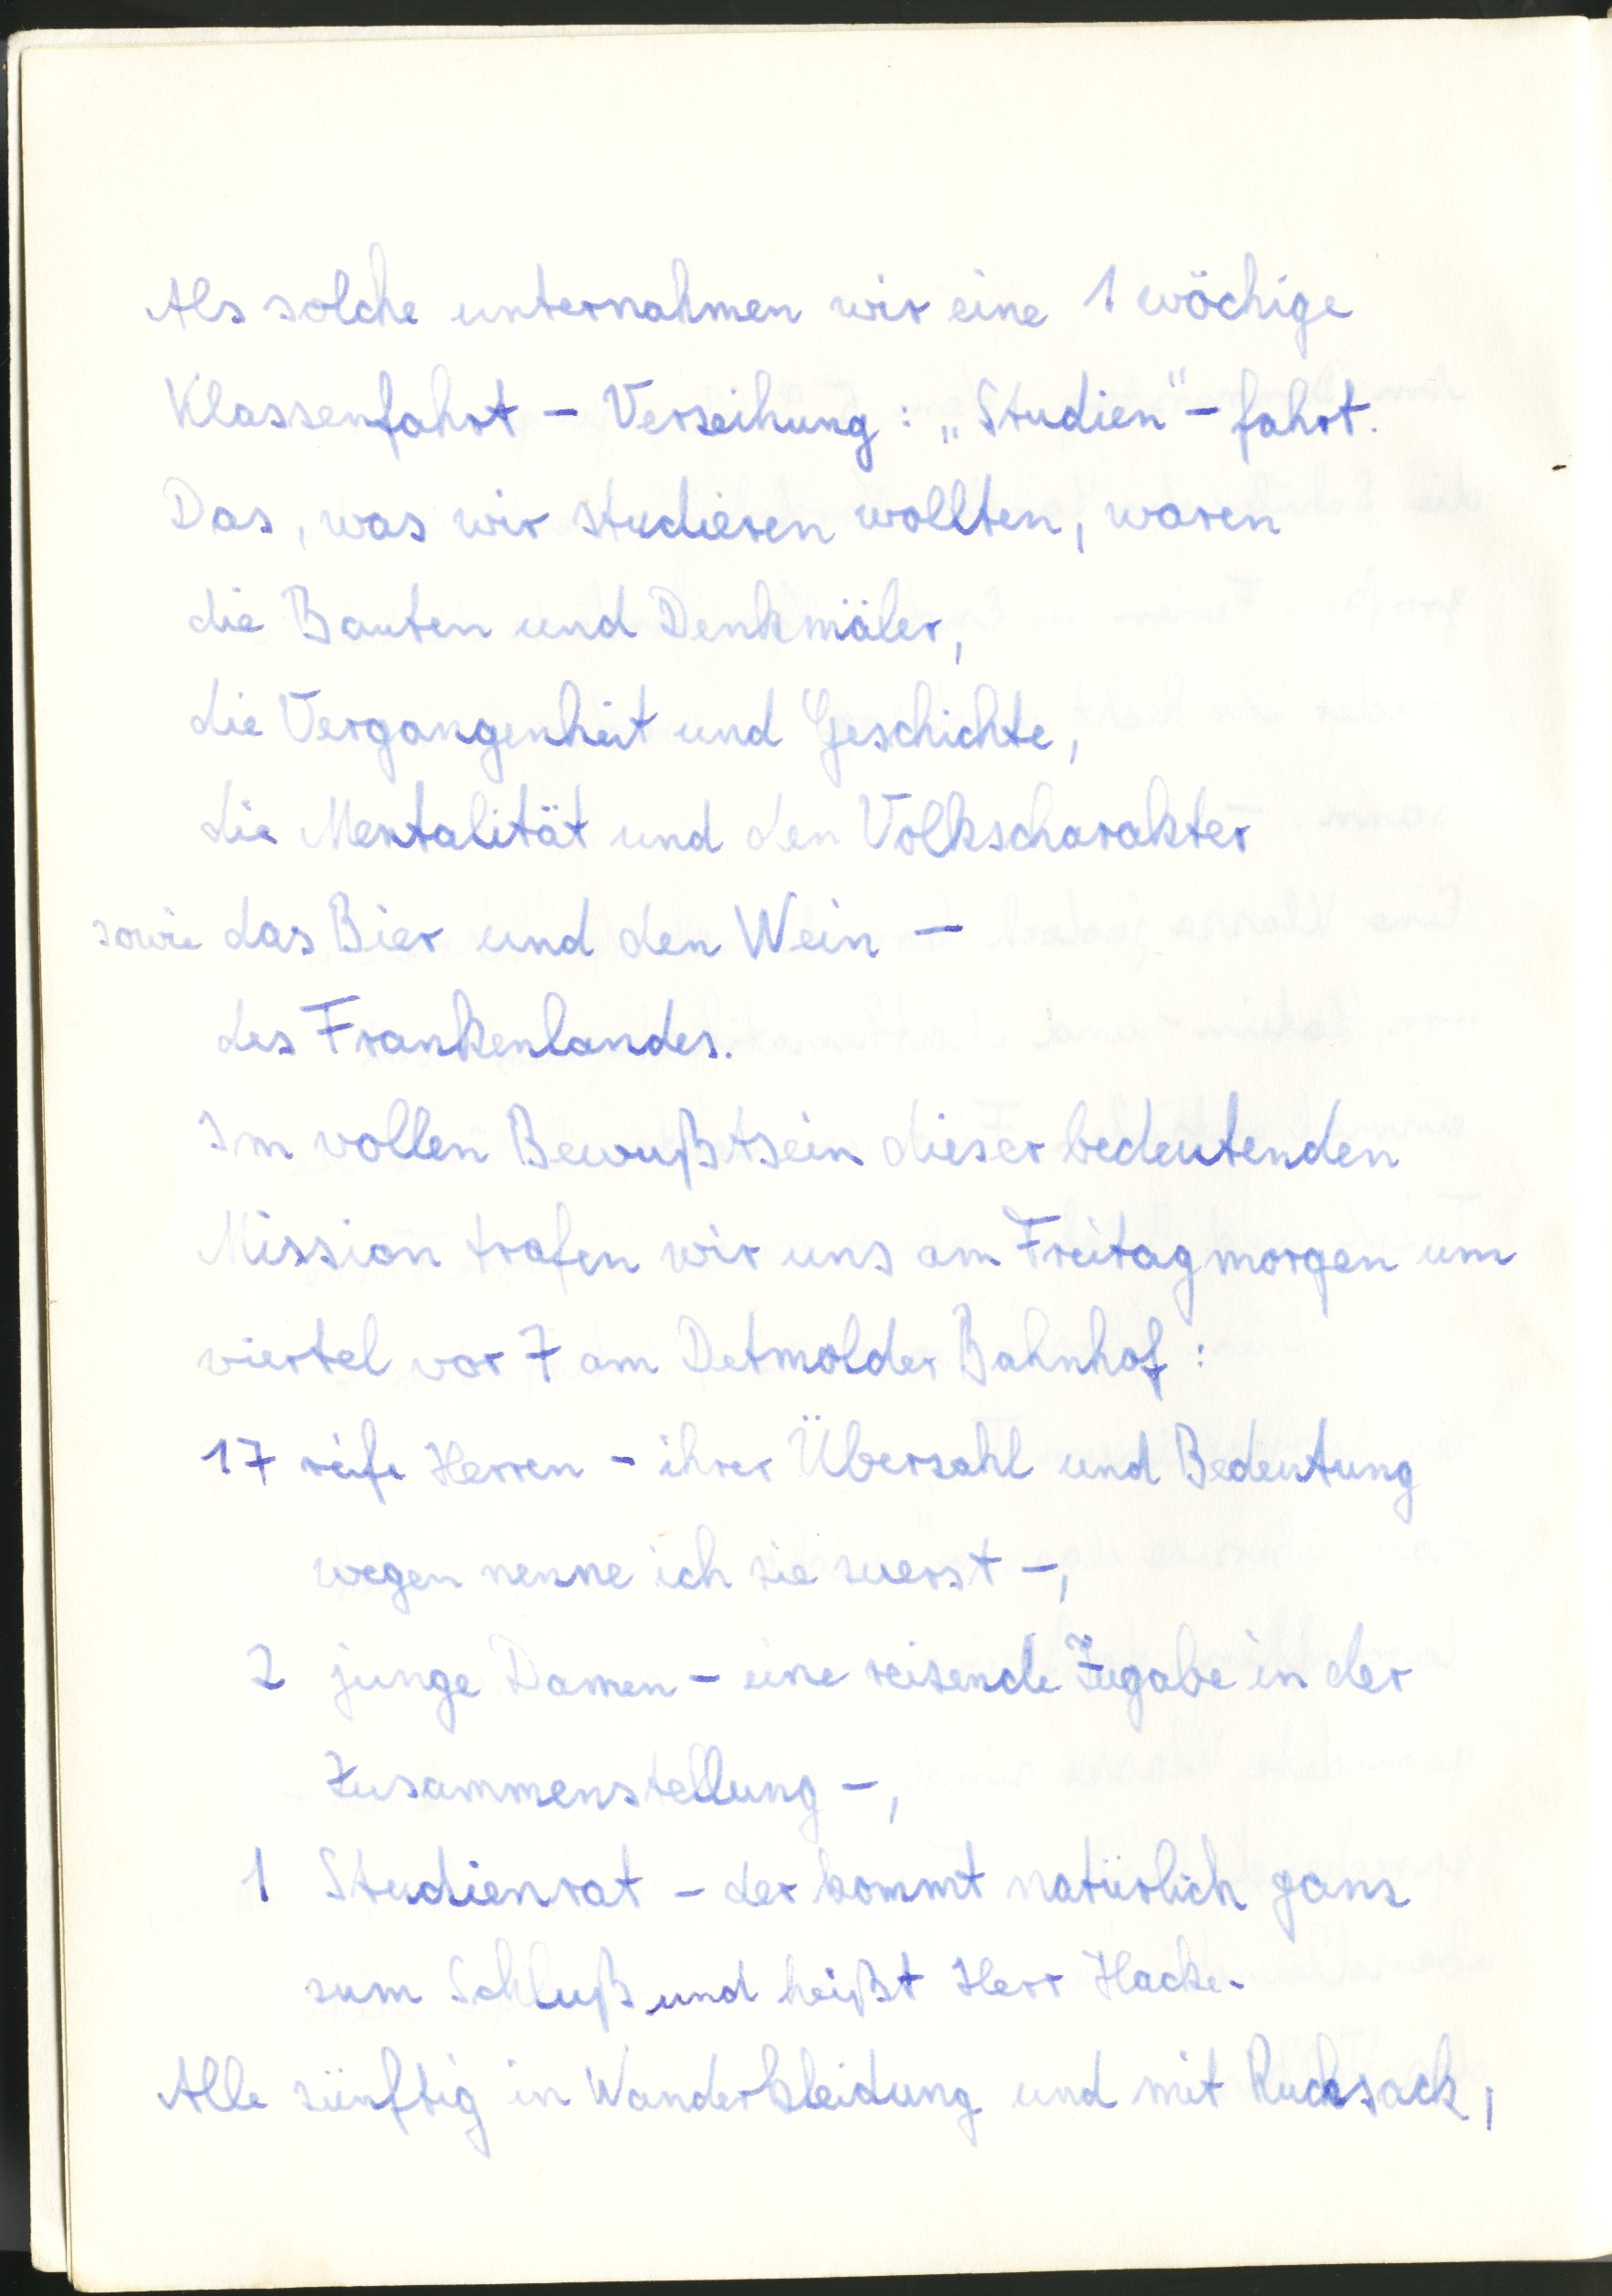 Als solche unternahmen wir eine 1 wöchige
Klassenfahrt – Verzeihung: „Studien“ – fahrt.
Das, was wir studieren wollten, waren
die Bauten und Denkmäler,
die Vergangenheit und Geschichte,
die Mentalität und den Volkscharakter
sowie das Bier und den Wein –
des Frankenlandes.
Im vollen Bewußtsein dieser bedeutenden
Mission trafen wir uns am Freitagmorgen um
viertel vor 7 am Detmolder Bahnhof:
17 reife Herren – ihrer Überzahl und Bedeutung
wegen nenne ich sie zuerst –,
2 junge Damen – eine reizende Zugabe in der
Zusammenstellung –,
1 Studienrat – der kommt natürlich ganz
zum Schluß und heißt Herr Hacke.
Alle zünftig in Wanderkleidung und mit Rucksack,